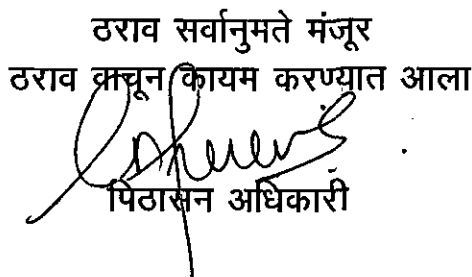 ठराव सर्वानुमते मंजूर
ठराव वाचून कायम करण्यात आला
पिठासन अधिकारी